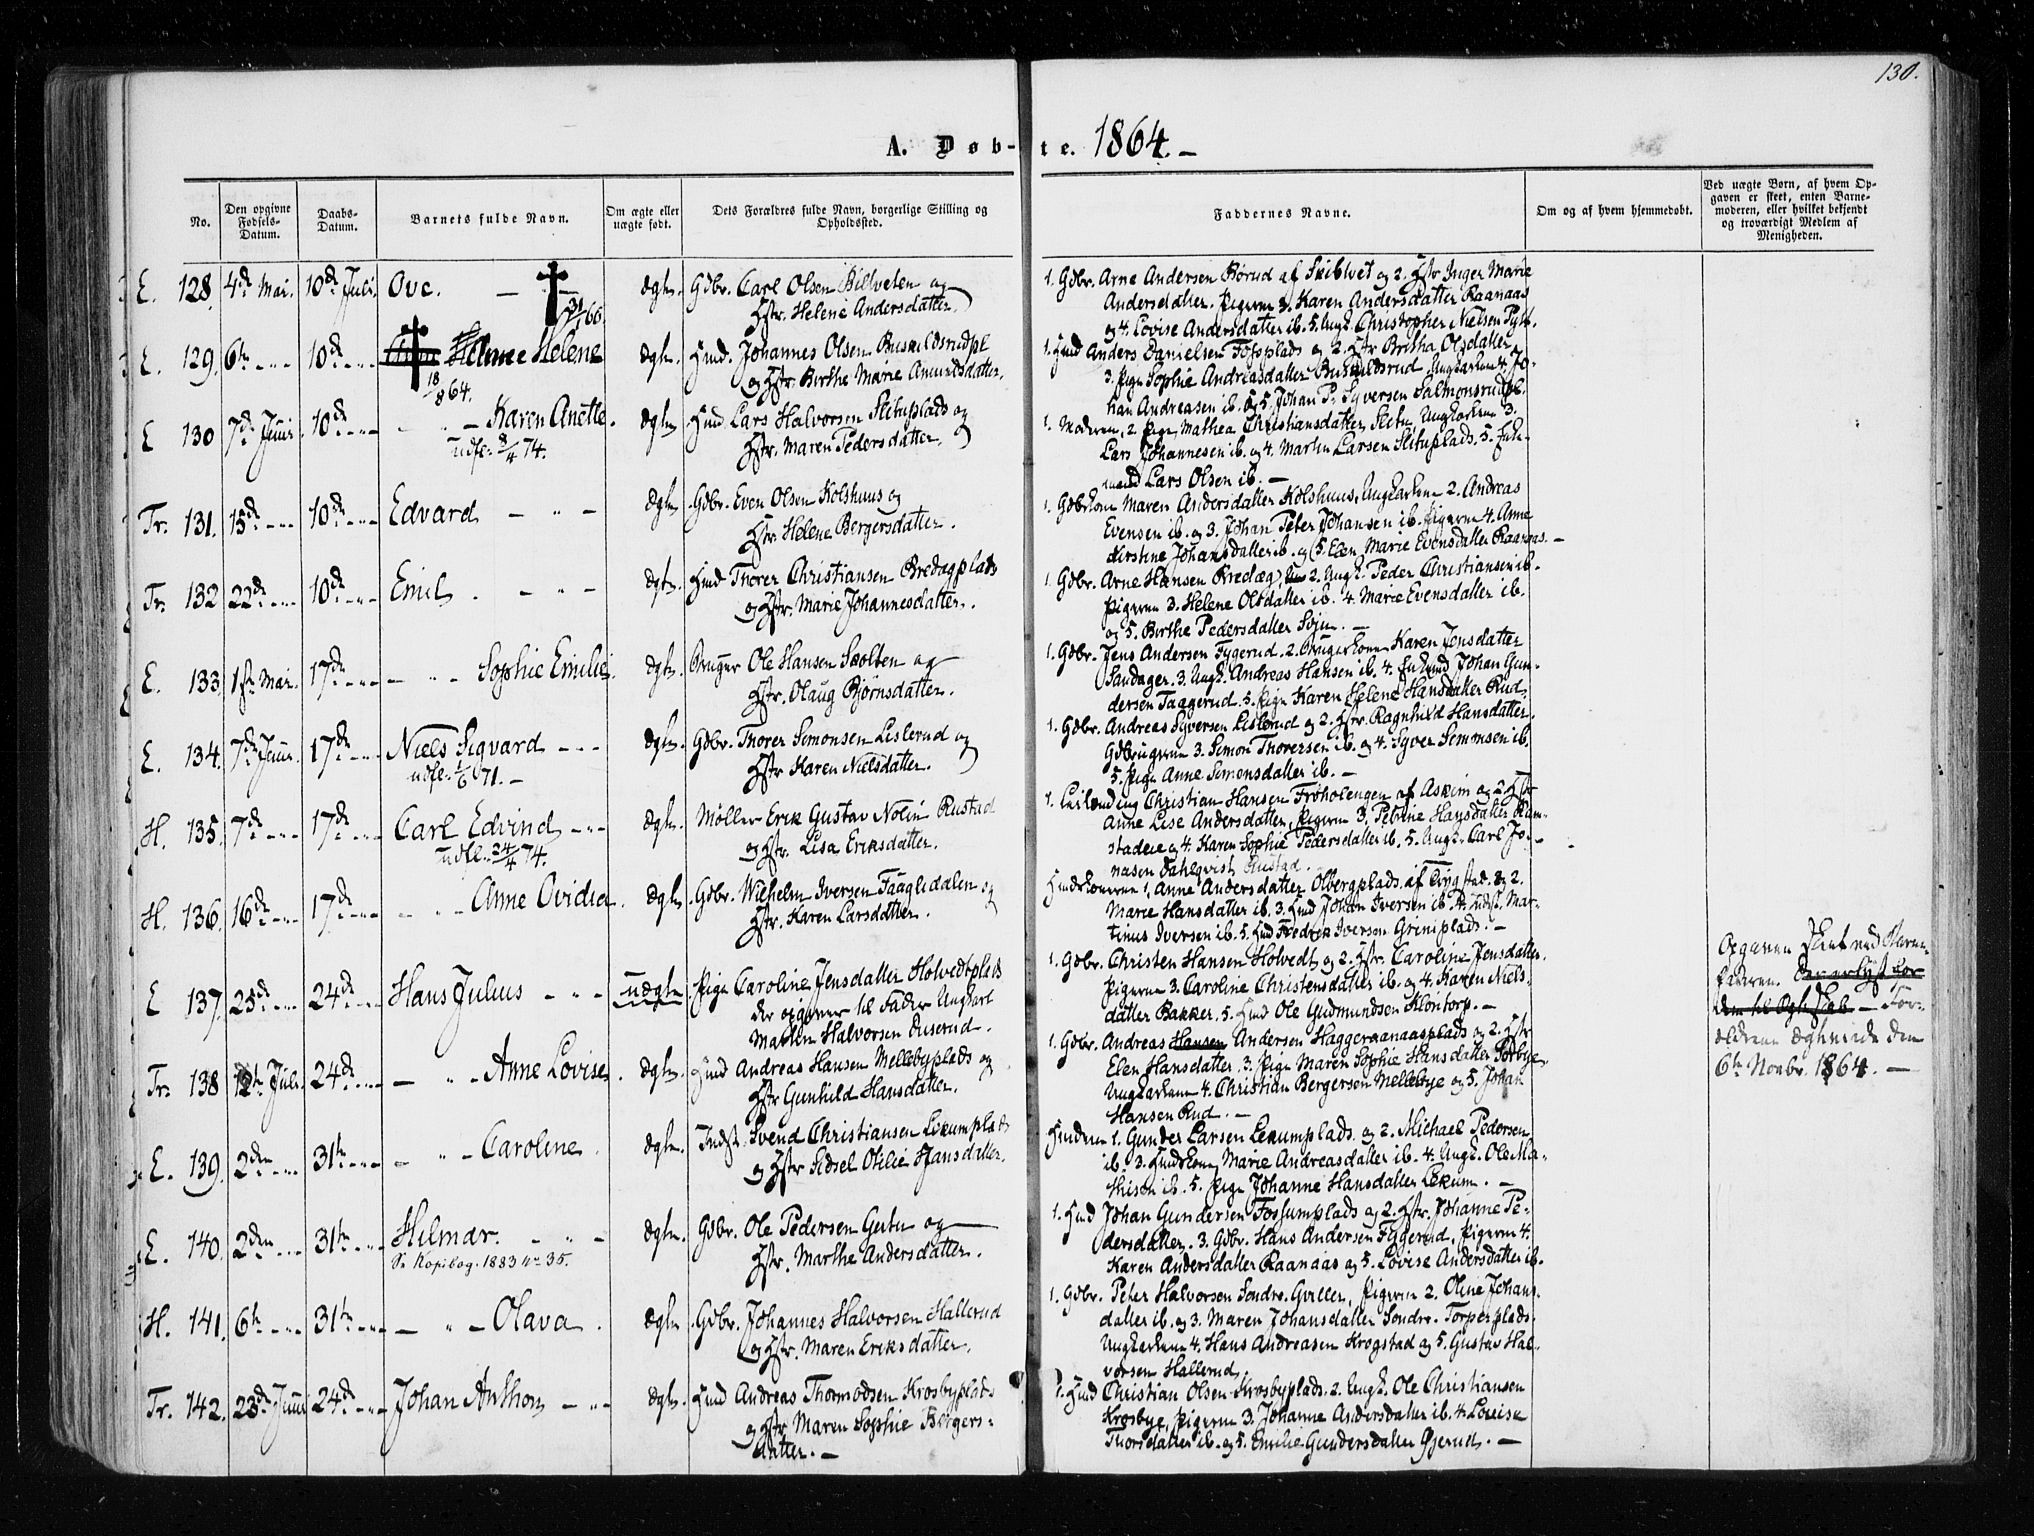 130.
A. Døb-te. 1864.-
No.
Den opgivne Fødsels-Datum.
Daabs-Datum.
Barnets fulde Navn.
Om ægte eller uægte født.
Dets Forældres fulde Navn, borgerlige Stilling og Opholdssted.
Faddernes Navne.
Om og af hvem hjemmedøbt.
Ved uægte Børn, af hvem Opgaven er skeet, enten Barnemoderen, eller hvilket bekjendt og troværdigt Medlem af Menigheden.
E. 128. 4de Mai. 10de Juli. Ove. 31/ 66. ægte. Gdbr. Carl Olsen Billveten og
Hstr. Helene Andersdatter.
1. Gdbr. Arne Andersen Børud af Skibtvet og 2. Hstr Inger Marie
Andersdatter. Pigerne 3. Karen Andersdatter Raanaas
og 4. Lovise Andersdatter ib. 5. Ungk. Christopher Nielsen
E. 129. 6te 10de Helene 18/8 64. ægte. Hmd. Johannes Olsen Buskildsrudpl
og Hstr. Berthe Marie Amundsdatter.
1. Hmd Anders Danielsen Fossplads og 2. Hstr Bertha Olsdatter.
3. Pige Sophie Andreasdatter Buskildsrud Ungkarlene 4. Jo-
han Andreasen ib. og 5. Johan P. Syversen Salmonsrudpl.
E 130 7de Juni. 10de Karen Anette. udfl. 8/4 74. ægte Hmd. Lars Halvorsen Sletuplads og
Hstr. Maren Pedersdatter.
1. Moderen, 2. Pige Mathea Christiansdatter Sletu, Ungkarlene 3.
Lars Johannesen ib. og 4. Martin Larsen Sletuplads. 5. Enke-
mand Lars Olsen ib. -
Tr. 131. 15de 10de Edvard ægte Gdbr. Even Olsen Kolshuus og
Hstr. Helene Bergersdatter.
1. Gdbrkone Maren Andersdatter Kolshuus, Ungkarlene 2. Andreas
Evensen ib. og 3. Johan Peter Johansen ib. Pigerne 4. Anne
Kirstine Johansdatter ib. og 5. Elen Marie Evensdatter Raanaas. -
Tr. 132 22de 10de Emil ægte. Hmd Thorer Christiansen Bredagplads
og Hstr. Marie Johannesdatter.
1. Gdbr. Arne Hansen Bredæg, 2. Ungk. Peder Christiansen ib.
Pigerne 3. Helene Olsdatter ib. 4. Marie Evensdatter ib.
og 5. Berthe Pedersdatter Sojn. -
E. 133. 1ste Mai. 17de Sophie Emilie. ægte. Bruger Ole Hansen Skolten og
Hstr. Olaug Bjørnsdatter.
1. Gdbr. Jens Andersen Fygerud. 2. Brugerkone Karen Jensdatter
Sandager. 3. Ungk. Andreas Hansen ib. 4. Enkemd Johan Gun-
dersen Taagerud. 5. Pige Karen Helene Hansdatter Rud.
E. 134. 7de Juni. 17de Niels Sigvard udfl. 1/6 71. - ægte. Gdbr. Thorer Simonsen Lislerud og
Hstr. Karen Nielsdatter.
1. Gdbr. Andreas Syversen Lislerud og 2. Hstr. Ragnhild Hansdatter.
Gdbrugerne 3. Simon Thorersen ib. og 4. Syver Simonsen ib.
5. Pige Anne Simonsdatter ib. -
H. 135. 7de 17de Carl Edvind udfl. 24/4 74. ægte. Møller Erik Gustav Nolin Rustad
og Hstr. Lisa Eriksdatter.
1. Leilænding Christian Hansen Froholengen af Askim og 2. Hstr
Anne Lise Andersdatter, Pigerne 3. Petrine Hansdatter Ram-
stadeie og 4. Karen Sophie Pedersdatter ib. 5. Ungk. Carl Jo-
nasen Dahlqvist Rustad.
H. 136. 16de 17de Anne Ovidia. ægte. Gdbr. Wilhelm Iversen Faaglidalen og
Hstr. Karen Larsdatter.
Hmdskonerne 1. Anne Andersdatter Olbergplads af Trygstad. & 2.
Marie Hansdatter ib. 3. Hmd Johan Iversen ib. 4. Indst. Mar-
tinus Iversen ib. 5. Hmd Fredrik Iversen Griniplads. -
E 137. 25de 24de Hans Julius uægte Pige Caroline Jensdatter Holvedtplads
der opgiver til Fader Ungkarl
Martin Halvorsen Buserud.
1. Gdbr. Christen Hansen Holvedt og 2. Hstr. Caroline Jensdatter.
Pigerne 3. Caroline Christensdatter ib. og 4. Karen Niels-
datter Bakker. 5. Hmd Ole Gudmundsen Klontorp. -
Opgaven skeet ved Barne-
faderen. For-
ældrene ægteviede den
6te Novbr. 1864. -
Tr. 138 Juli. 24de Anne Lovise. ægte. Hmd Andreas Hansen Mellebyplads og
Hstr Gunhild Hansdatter.
1. Gdbr. Andreas Hansen Andersen Haggeraanaasplads og 2. Hstr
Elen Hansdatter. 3. Pige Maren Sophie Hansdatter Torbye.
Ungkarlene 4. Christian Bergersen Mellebye og 5. Johan
Hansen Rud. -
E. 139. 2den 31te Caroline. ægte. Indst. Svend Christiansen Lekumplads
og Hstr Sidsel Otilie Hansdatter.
Hmdene 1. Gunder Larsen Lekumplads. og 2. Michael Pedersen
ib. 3. Hmdskone Marie Andreasdatter ib. 4. Ungk. Ole Ma-
thisen ib. 5. Pige Johanne Hansdatter Lekum. -
E. 140. 2den 31te Hilmar. Se Kopibog. 1883 No 35. ægte. Gdbr. Ole Pedersen Getu og
Hstr. Marthe Andersdatter.
1. Hmd Johan Gundersen Fossumplads og 2. Hstr. Johanne Pe-
dersdatter. 3. Gdbr. Hans Andersen Fygerud, Pigerne 4.
Karen Andersdatter Raanaas og 5. Lovise Andersdatter ib.
H. 141. 6te 31te Olava. ægte Gdbr. Johannes Halvorsen Hallerud
og Hstr. Maren Eriksdatter.
1. Gdbr. Peter Halvorsen Sondre Griller, Pigerne 2. Oline Johans-
datter ib. og 3. Maren Johansdatter Sondre Torperplads.
Ungkarlene 4. Hans Andreasen Krogstad og 5. Gustav Hal-
vorsen Hallerud.
Tr. 142. 23de Juni 24de Johan Anthon ægte. Hmd Andreas Thormodsen Krosbyplads
og Hstr Maren Sophie Bergers-
datter. -
1. Hmd Christian Olsen Krosbyplads. 2. Ungk. Ole Christiansen
Krosbye, Pigerne 3. Johanne Andersdatter ib. 4. Lovise
Thorsdatter ib. og 5. Emilie Gundersdatter Gjerud. -